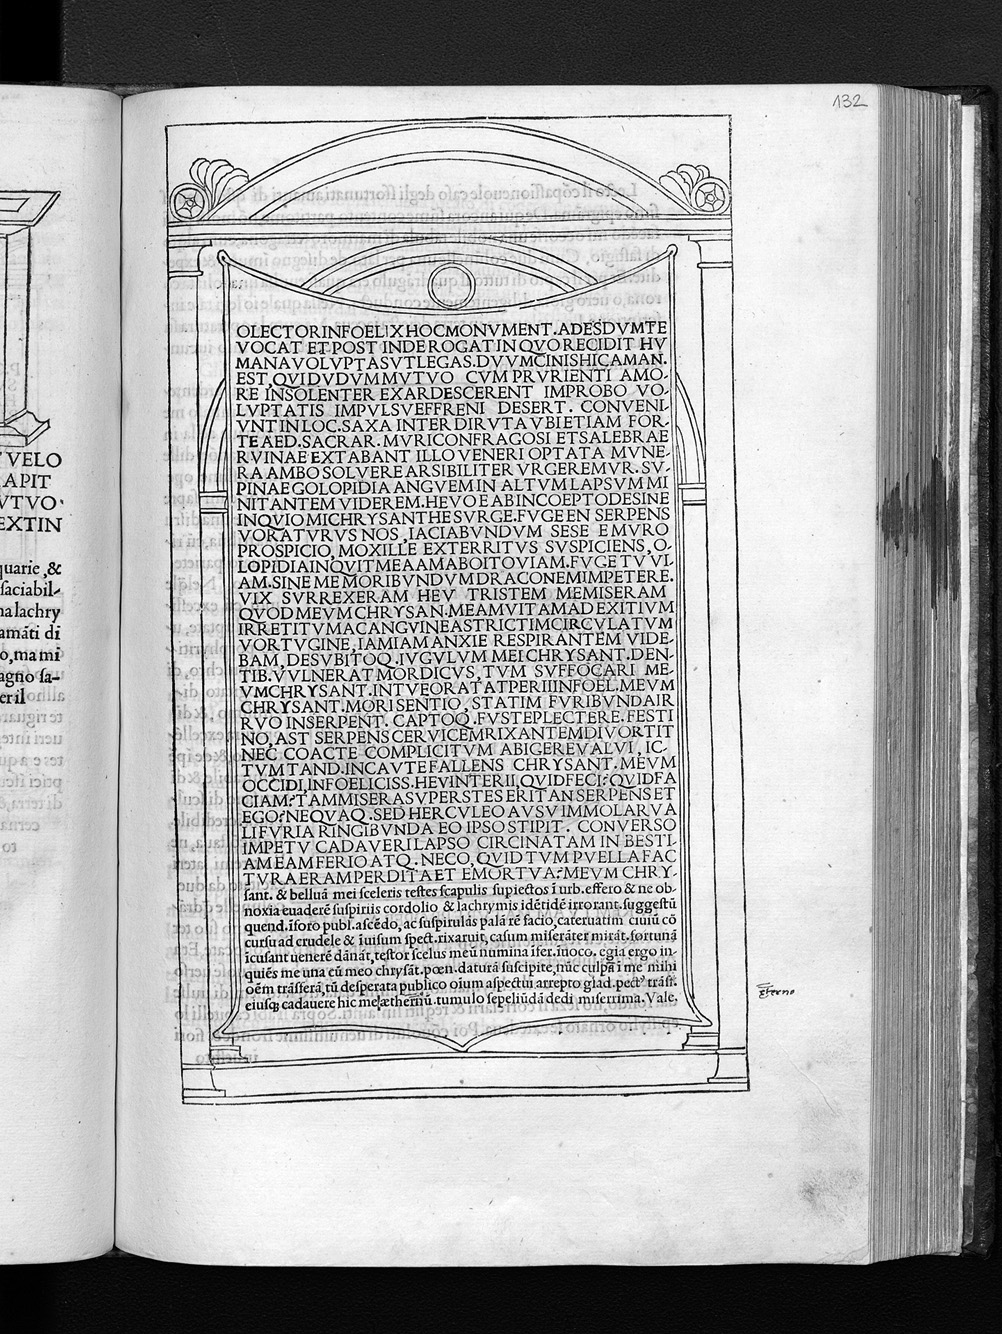 132
VVELO
APIT
VTVO.
EXTIN
quarie, &
saciabil-
na lachry
amāti di
o, ma mi
agno sa-
er il
O LECTOR INFOELIX HOC MONVMENT. ADESDVM TE
VOCAT ET POST INDE ROGAT IN QVO RECIDIT HV
MANA VOLVPTAS VT LEGAS. DVVM CINIS HIC AMAN.
EST, QVI DVDVM MVTVO CVM PRVRIENTI AMO-
RE INSOLENTER EXARDESCERENT IMPROBO VO-
LVPTATIS IMPVLSV EFFRENI DESERT. CONVENI-
VNT IN LOC. SAXA INTER DIRVTA VBI ETIAM FOR-
TE AED. SACRAR. MVRI CONFRAGOSI ET SALEBRAE
RVINAE EXTABANT ILLO VENERI OPTATA MVNE-
RA AMBO SOLVERE ARSIBILITER VRGEREMVR. SV-
PINA EGO LOPIDIA ANGVEM IN ALTVM LAPSVM MI
NITANTEM VIDEREM. HEV OE AB INCOEPTO DESINE
INQVIO MI CHRYSANTHE SVRGE. FVGE EN SERPENS
VORATVRVS NOS, IACIABVNDVM SESE E MVRO
PROSPICIO, MOX ILLE EXTERRITVS SVSPICIENS, O-
LOPIDIA INQVIT MEA AMABO ITO VIAM. FVGE TV VI-
AM. SINE ME MORIBVNDVM DRACONEM IMPETERE.
VIX SVRREXERAM HEV TRISTEM ME MISERAM
QVOD MEVM CHRYSAN. MEAM VITAM AD EXITIVM
IRRETITVM ACANGVINEAS TRICTIM CIRCVLATVM
VORTVGINE, IAMIAM ANXIE RESPIRANTEM VIDE-
BAM, DE SVBITOQ. IVGVLVM MEI CHRYSANT. DEN-
TIB. VVLNERAT MORDICVS, TVM SVFFOCARI ME-
VM CHRYSANT. INTVEOR AT AT PERII INFOEL. MEVM
CHRYSANT. MORI SENTIO, STATIM FVRIBVNDA IR
RVO IN SERPENT. CAPTOQ. FVSTE PLECTERE. FESTI
NO, AST SERPENS CERVICEM RIXANTEM DIVORTIT
NEC COACTE COMPLICITVM ABIGERE VALVI, IC-
TVM TAND. INCAVTE FALLENS CHRYSANT. MEVM
OCCIDI, INFOELICISS. HEV INTERII, QVID FECI? QVID FA
CIAM? TAM MISERA SVPERSTES ERIT AN SERPENS ET
EGO? NEQVAQ. SED HERCVLEO AVSV IMMO LARVA
LI FVRIA RINGIBVNDA EO IPSO STIPIT. CONVERSO
IMPETV CADAVERI LAPSO CIRCINATAM IN BESTI-
AM EAM FERIO ATQ. NECO, QVID TVM PVELLA FAC
TVRA ERAM PERDITA ET EMORTVA? MEVM CHRY-
sant. & belluā mei sceleris testes scapulis supiectos ī urb. effero & ne ob-
noxia euaderē suspiriis cordolio & lachrymis idētidē irrorant. suggestū
quend. īforo publ. ascēdo, ac suspirulās palā rē facio, cateruatim ciuiū cō
cursu ad crudele & īuisum spect. rixaruit, casum miserāter mirāt. fortunā
īcusant uenerē dānāt, testor scelus meū numina īfer. īuoco. egīa ergo in-
quiēs me una cū meo chrysāt. pœn. daturā suscipite, nūc culpā ī me mihi
oēm trāsferā, tū desperata publico oīum aspectui arrepto glad. pect9 trāsf.
eiusq; cadauere hic me æthernū. tumulo sepeliūdā dedi miserrima. Vale.
eterno